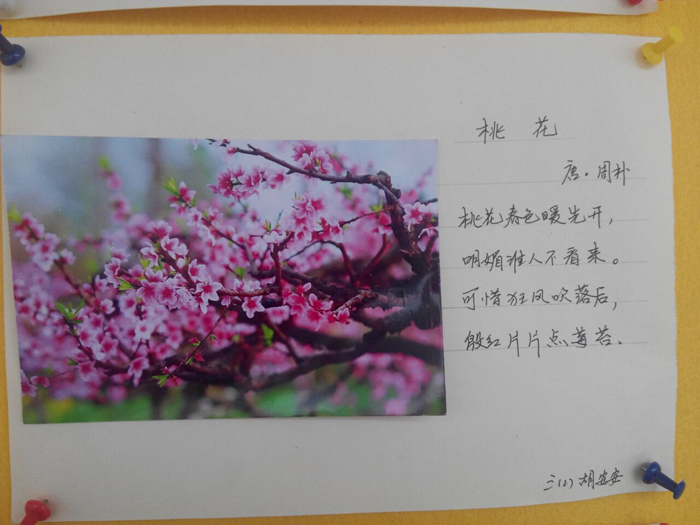 桃花
唐·周朴
桃花春色暖先开,
明媚谁人不看来。
可惜狂风吹落后,
殷红片片点莓苔.
三(2)胡安安